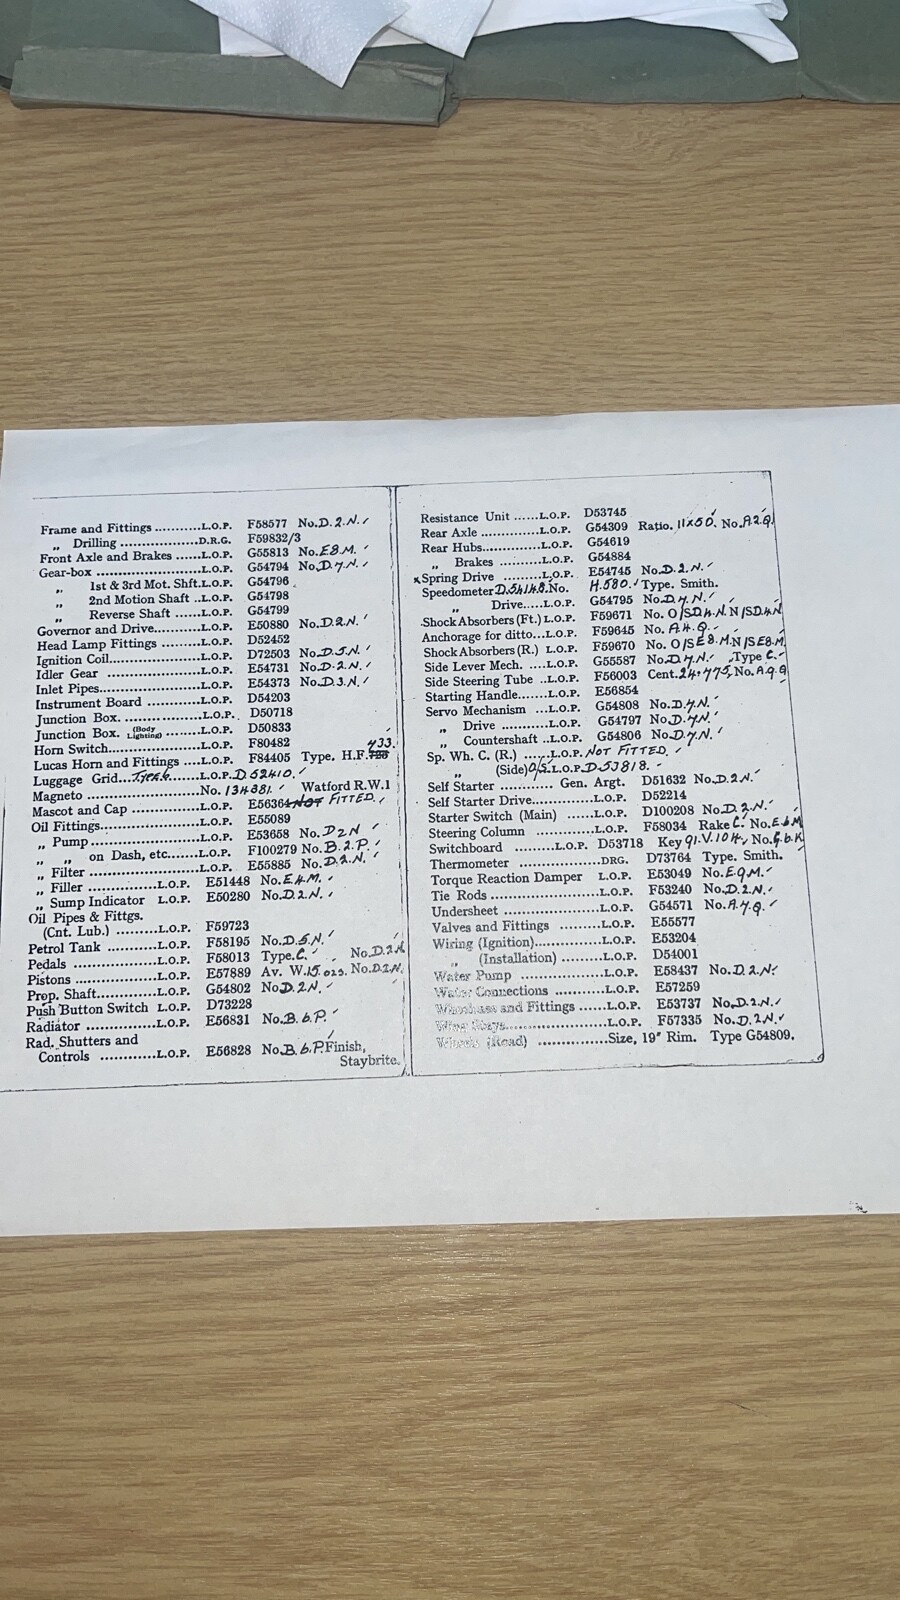 Frame and Fittings ...........L.O.P. F58577 No.D.2.N.
„ Drilling ....................D.R.G. F59832/3
Front Axle and Brakes ......L.O.P. G55813 No.E8.M.
Gear-box ..........................L.O.P. G54794 No.D.4.N.
„ 1st & 3rd Mot. Shft.L.O.P. G54796
„ 2nd Motion Shaft ..L.O.P. G54798
„ Reverse Shaft ......L.O.P. G54799
Governor and Drive............L.O.P. E50880 No.D.2.N.
Head Lamp Fittings ..........L.O.P. D52452
Ignition Coil......................L.O.P. D72503 No.D.5.N.
Idler Gear ........................L.O.P. E54731 No.D.2.N.
Inlet Pipes..........................L.O.P. E54373 No.D.3.N.
Instrument Board ..............L.O.P. D54203
Junction Box. ....................L.O.P. D50718
Junction Box. (Body Lighting) .........L.O.P. D50833
Horn Switch........................L.O.P. F80482
Lucas Horn and Fittings ....L.O.P. F84405 Type. H.F. 433.
Luggage Grid...Type 6.......L.O.P. D52410.
Magneto ............................No. 134381. Watford R.W.1
Mascot and Cap ..................L.O.P. E56364 NOT FITTED.
Oil Fittings..........................L.O.P. E55089
„ Pump ............................L.O.P. E53658 No. D2N
„ „ on Dash, etc.......L.O.P. F100279 No. B.2.P.
„ Filter ............................L.O.P. E55885 No.D.2.N.
„ Filler ............................L.O.P. E51448 No.E.4.M.
„ Sump Indicator L.O.P. E50280 No.D.2.N.
Oil Pipes & Fittgs.
(Cnt. Lub.) ..............L.O.P. F59723
Petrol Tank ......................L.O.P. F58195 No.D.5.N.
Pedals ................................L.O.P. F58013 Type.C. No.D.2.N
Pistons ..............................L.O.P. E57889 Av. W.15.ozs. No.D.2.N.
Prop. Shaft........................L.O.P. G54802 No.D.2.N.
Push Button Switch L.O.P. D73228
Radiator ............................L.O.P. E56831 No.B.6.P.
Rad. Shutters and
Controls ................L.O.P. E56828 No.B.6.P. Finish,
Staybrite.
Resistance Unit ......L.O.P. D53745
Rear Axle ....................L.O.P. G54309 Ratio. 11X50. No.A.2.Q.
Rear Hubs....................L.O.P. G54619
„ Brakes ..............L.O.P. G54884
xSpring Drive ............L.O.P. E54745 No.D.2.N.
Speedometer D.54148.No. H.580. Type. Smith.
„ Drive.....L.O.P. G54795 No.D.4.N.
Shock Absorbers (Ft.) L.O.P. F59671 No. O/SD.4.N. N/SD.4.N
Anchorage for ditto...L.O.P. F59645 No. A.4.Q.
Shock Absorbers (R.) L.O.P. F59670 No. O/SE8.M.N/SE8.M.
Side Lever Mech. ....L.O.P. G55587 No.D.4.N. Type C.
Side Steering Tube ..L.O.P. F56003 Cent.24.775, No.A.9.Q
Starting Handle..........L.O.P. E56854
Servo Mechanism ...L.O.P. G54808 No.D.4.N.
„ Drive ..........L.O.P. G54797 No.D.4.N.
„ Countershaft ..L.O.P. G54806 No.D.4.N.
Sp. Wh. C. (R.) .......L.O.P. NOT FITTED.
„ (Side) O/S.L.O.P. D53818.
Self Starter ............ Gen. Argt. D51632 No.D.2.N.
Self Starter Drive............L.O.P. D52214
Starter Switch (Main) ......L.O.P. D100208 No.D.2.N.
Steering Column ............L.O.P. F58034 Rake C. No.E.6.M
Switchboard ..........L.O.P. D53718 Key 91.V.10H, No.G.6.K
Thermometer ................DRG. D73764 Type. Smith.
Torque Reaction Damper L.O.P. E53049 No.E.9.M.
Tie Rods ........................L.O.P. F53240 No.D.2.N.
Undersheet ....................L.O.P. G54571 No.A.4.Q.
Valves and Fittings ........L.O.P. E55577
Wiring (Ignition)..............L.O.P. E53204
„ (Installation) ........L.O.P. D54001
Water Pump ....................L.O.P. E58437 No.D.2.N.
Water Connections ..........L.O.P. E57259
Wheelbase and Fittings ......L.O.P. E53737 No.D.2.N.
Wire Stays......................L.O.P. F57335 No.D.2.N.
Wheels (Road) ................Size, 19" Rim. Type G54809.